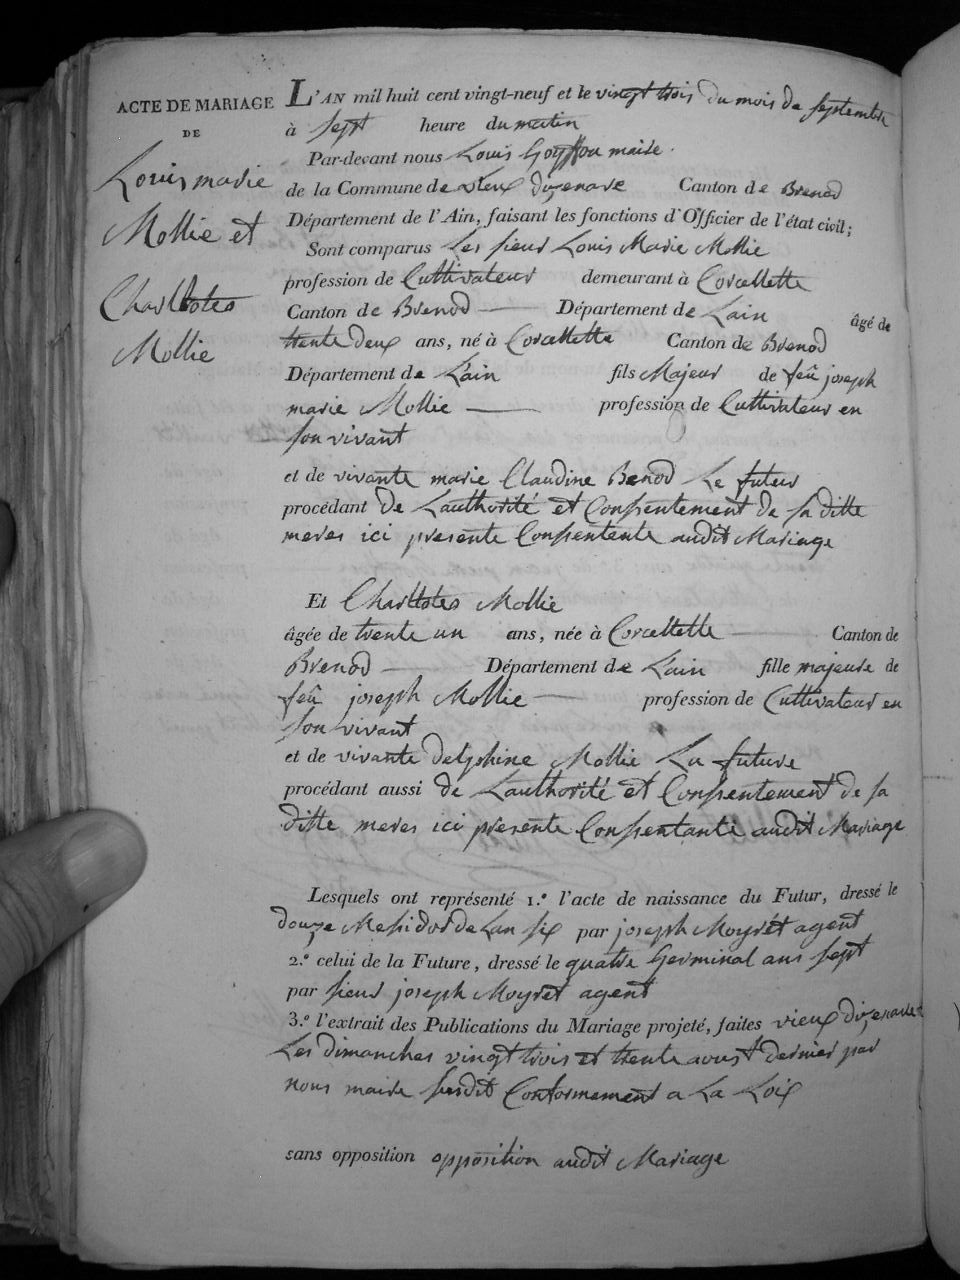 ACTE DE MARIAGE
DE
Louis marie
Mollie et
Charllotes
Mollie
L'AN mil huit cent vingt-neuf et le vingt trois du mois de septembre
à sept heure du matin
Par-devant nous Louis Goyffou maire
de la Commune de vieux dizenave Canton de Brenod
Département de l'Ain, faisant les fonctions d'Officier de l'état civil;
Sont comparus Les sieur Louis Marie Mollie
profession de Cultivateur demeurant à Corcellette
Canton de Brenod Département de Lain âgé de
trente deux ans, né à Corcellette Canton de Brenod
Département de L'ain fils Majeur de feû joseph
marie Mollie profession de Cultivateur en
son vivant
et de vivante marie Claudine Benod Le futur
procédant de Lauthorité et Consentement de sa ditte
meres ici presente Consentente audit Mariage
Et Charllotes Mollie
âgée de trente un ans, née à Corcellette Canton de
Brenod Département de L'ain fille majeure de
feû joseph Mollie profession de Cultivateur en
son vivant
et de vivante delphine Mollie La future
procédant aussi de Lauthorité et Consentement de sa
ditte meres ici presente Consentante audit Mariage
Lesquels ont représenté 1.º l'acte de naissance du Futur, dressé le
douze Messidor de Lan six par joseph Moyrét agent
2.º celui de la Future, dressé le quatre Germinal ans sept
par sieur joseph Moyret agent
3.º l'extrait des Publications du Mariage projeté, faites vieux dizenave
Les dimanches vingt trois et trente aoust dernier par
nous maire susdit Conformement a La Loix
sans opposition opposition audit Mariage